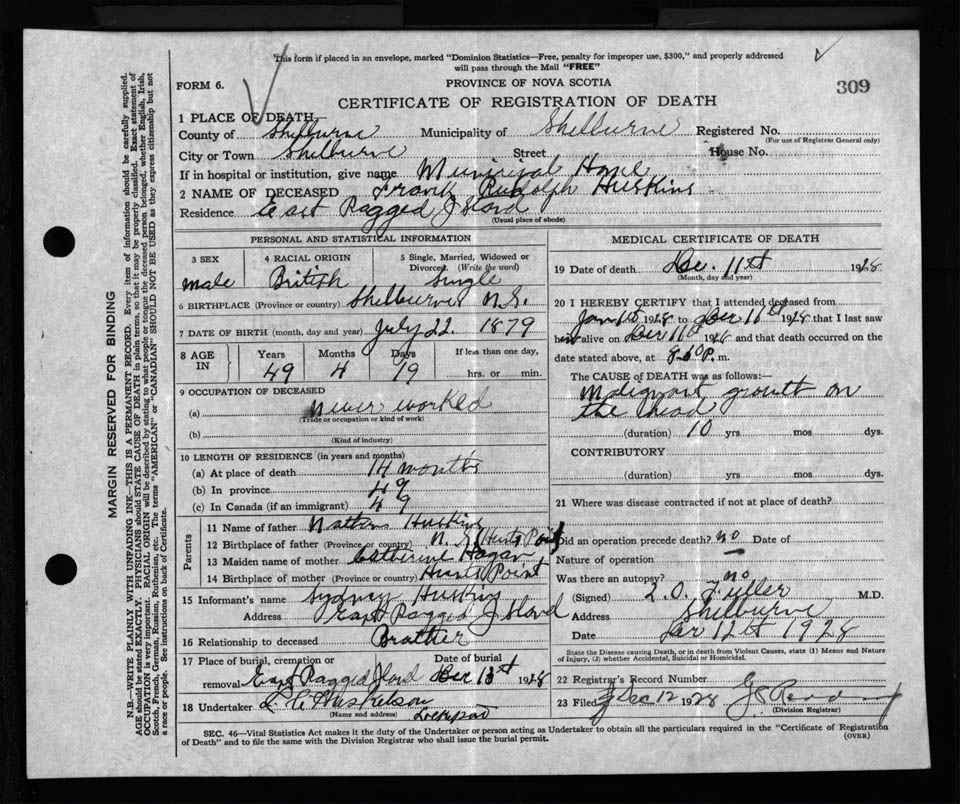 This form if placed in an envelope, marked "Dominion Statistics—Free, penalty for improper use, $300," and properly addressed
will pass through the Mail "FREE"
FORM 6.
PROVINCE OF NOVA SCOTIA
309
CERTIFICATE OF REGISTRATION OF DEATH
1 PLACE OF DEATH—
County of Shelburne Municipality of Shelburne Registered No.
(For use of Registrar General only)
City or Town Shelburne Street House No.
If in hospital or institution, give name Municipal Home
2 NAME OF DECEASED Frank Rudolph Huskins
Residence East Ragged Island
(Usual place of abode)
PERSONAL AND STATISTICAL INFORMATION
3 SEX 4 RACIAL ORIGIN 5 Single, Married, Widowed or
Divorced. (Write the word)
male British Single
6 BIRTHPLACE (Province or country) Shelburne N.S.
7 DATE OF BIRTH (month, day and year) July 22. 1879
8 AGE IN Years Months Days If less than one day,
49 4 19 hrs. or min.
9 OCCUPATION OF DECEASED
(a) Never worked
(Trade or occupation or kind of work)
(b)
(Kind of industry)
10 LENGTH OF RESIDENCE (in years and months)
(a) At place of death 14 months
(b) In province 49
(c) In Canada (if an immigrant) 49
Parents
11 Name of father Nathan Huskins
12 Birthplace of father (Province or country) N.S. Hunts Point
13 Maiden name of mother Catherine Hagan
14 Birthplace of mother (Province or country) Hunts Point
15 Informant's name Sydney Huskins
Address East Ragged Island
16 Relationship to deceased Brother
17 Place of burial, cremation or Date of burial
removal East Ragged Island Dec 13th 1928
18 Undertaker Huskelson
(Name and address) Lockeport
MEDICAL CERTIFICATE OF DEATH
19 Date of death Dec. 11th 1928
(Month, day and year)
20 I HEREBY CERTIFY that I attended deceased from
Jan 1st 1928 to Dec 11th 1928 that I last saw
him alive on Dec 11th 1928 and that death occurred on the
date stated above, at P. m.
The CAUSE OF DEATH was as follows:—
Malignant growth on
the head
(duration) 10 yrs mos dys.
CONTRIBUTORY
(duration) yrs. mos. dys.
21 Where was disease contracted if not at place of death?
Did an operation precede death? no Date of
Nature of operation
Was there an autopsy? no
(Signed) L.O. Fuller M.D.
Address Shelburne
Date Dec 12th 1928
State the Disease causing Death, or in death from Violent Causes, state (1) Means and
Nature of Injury, (2) whether Accidental, Suicidal or Homicidal.
22 Registrar's Record Number
23 Filed Dec 12 1928
(Division Registrar)
SEC. 46—Vital Statistics Act makes it the duty of the Undertaker or person acting as Undertaker to obtain all the particulars required in the "Certificate of Registration
of Death" and to file the same with the Division Registrar who shall issue the burial permit. (OVER)
MARGIN RESERVED FOR BINDING
N.B.—WRITE PLAINLY WITH UNFADING INK—THIS IS A PERMANENT RECORD. Every item of information should be carefully supplied.
AGE should be stated EXACTLY. PHYSICIANS should STATE CAUSE OF DEATH in plain terms, so that it may be properly classified. Exact statement of
OCCUPATION is very important. RACIAL ORIGIN will be described by stating to what people or tongue the deceased person belonged, whether English, Irish,
Scotch, French, German, Russian, Ruthenian, etc. The terms "AMERICAN" or "CANADIAN" SHOULD NOT BE USED as they express citizenship but not
a race or people. See instructions on back of Certificate.